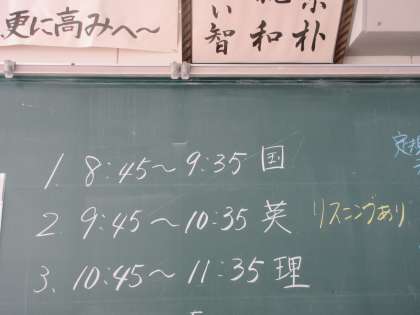 更に高みへ〜
い智
和
朴
1. 8:45〜9:35 国
2. 9:45〜10:35 英 リスニングあり
3. 10:45〜11:35 理
定規